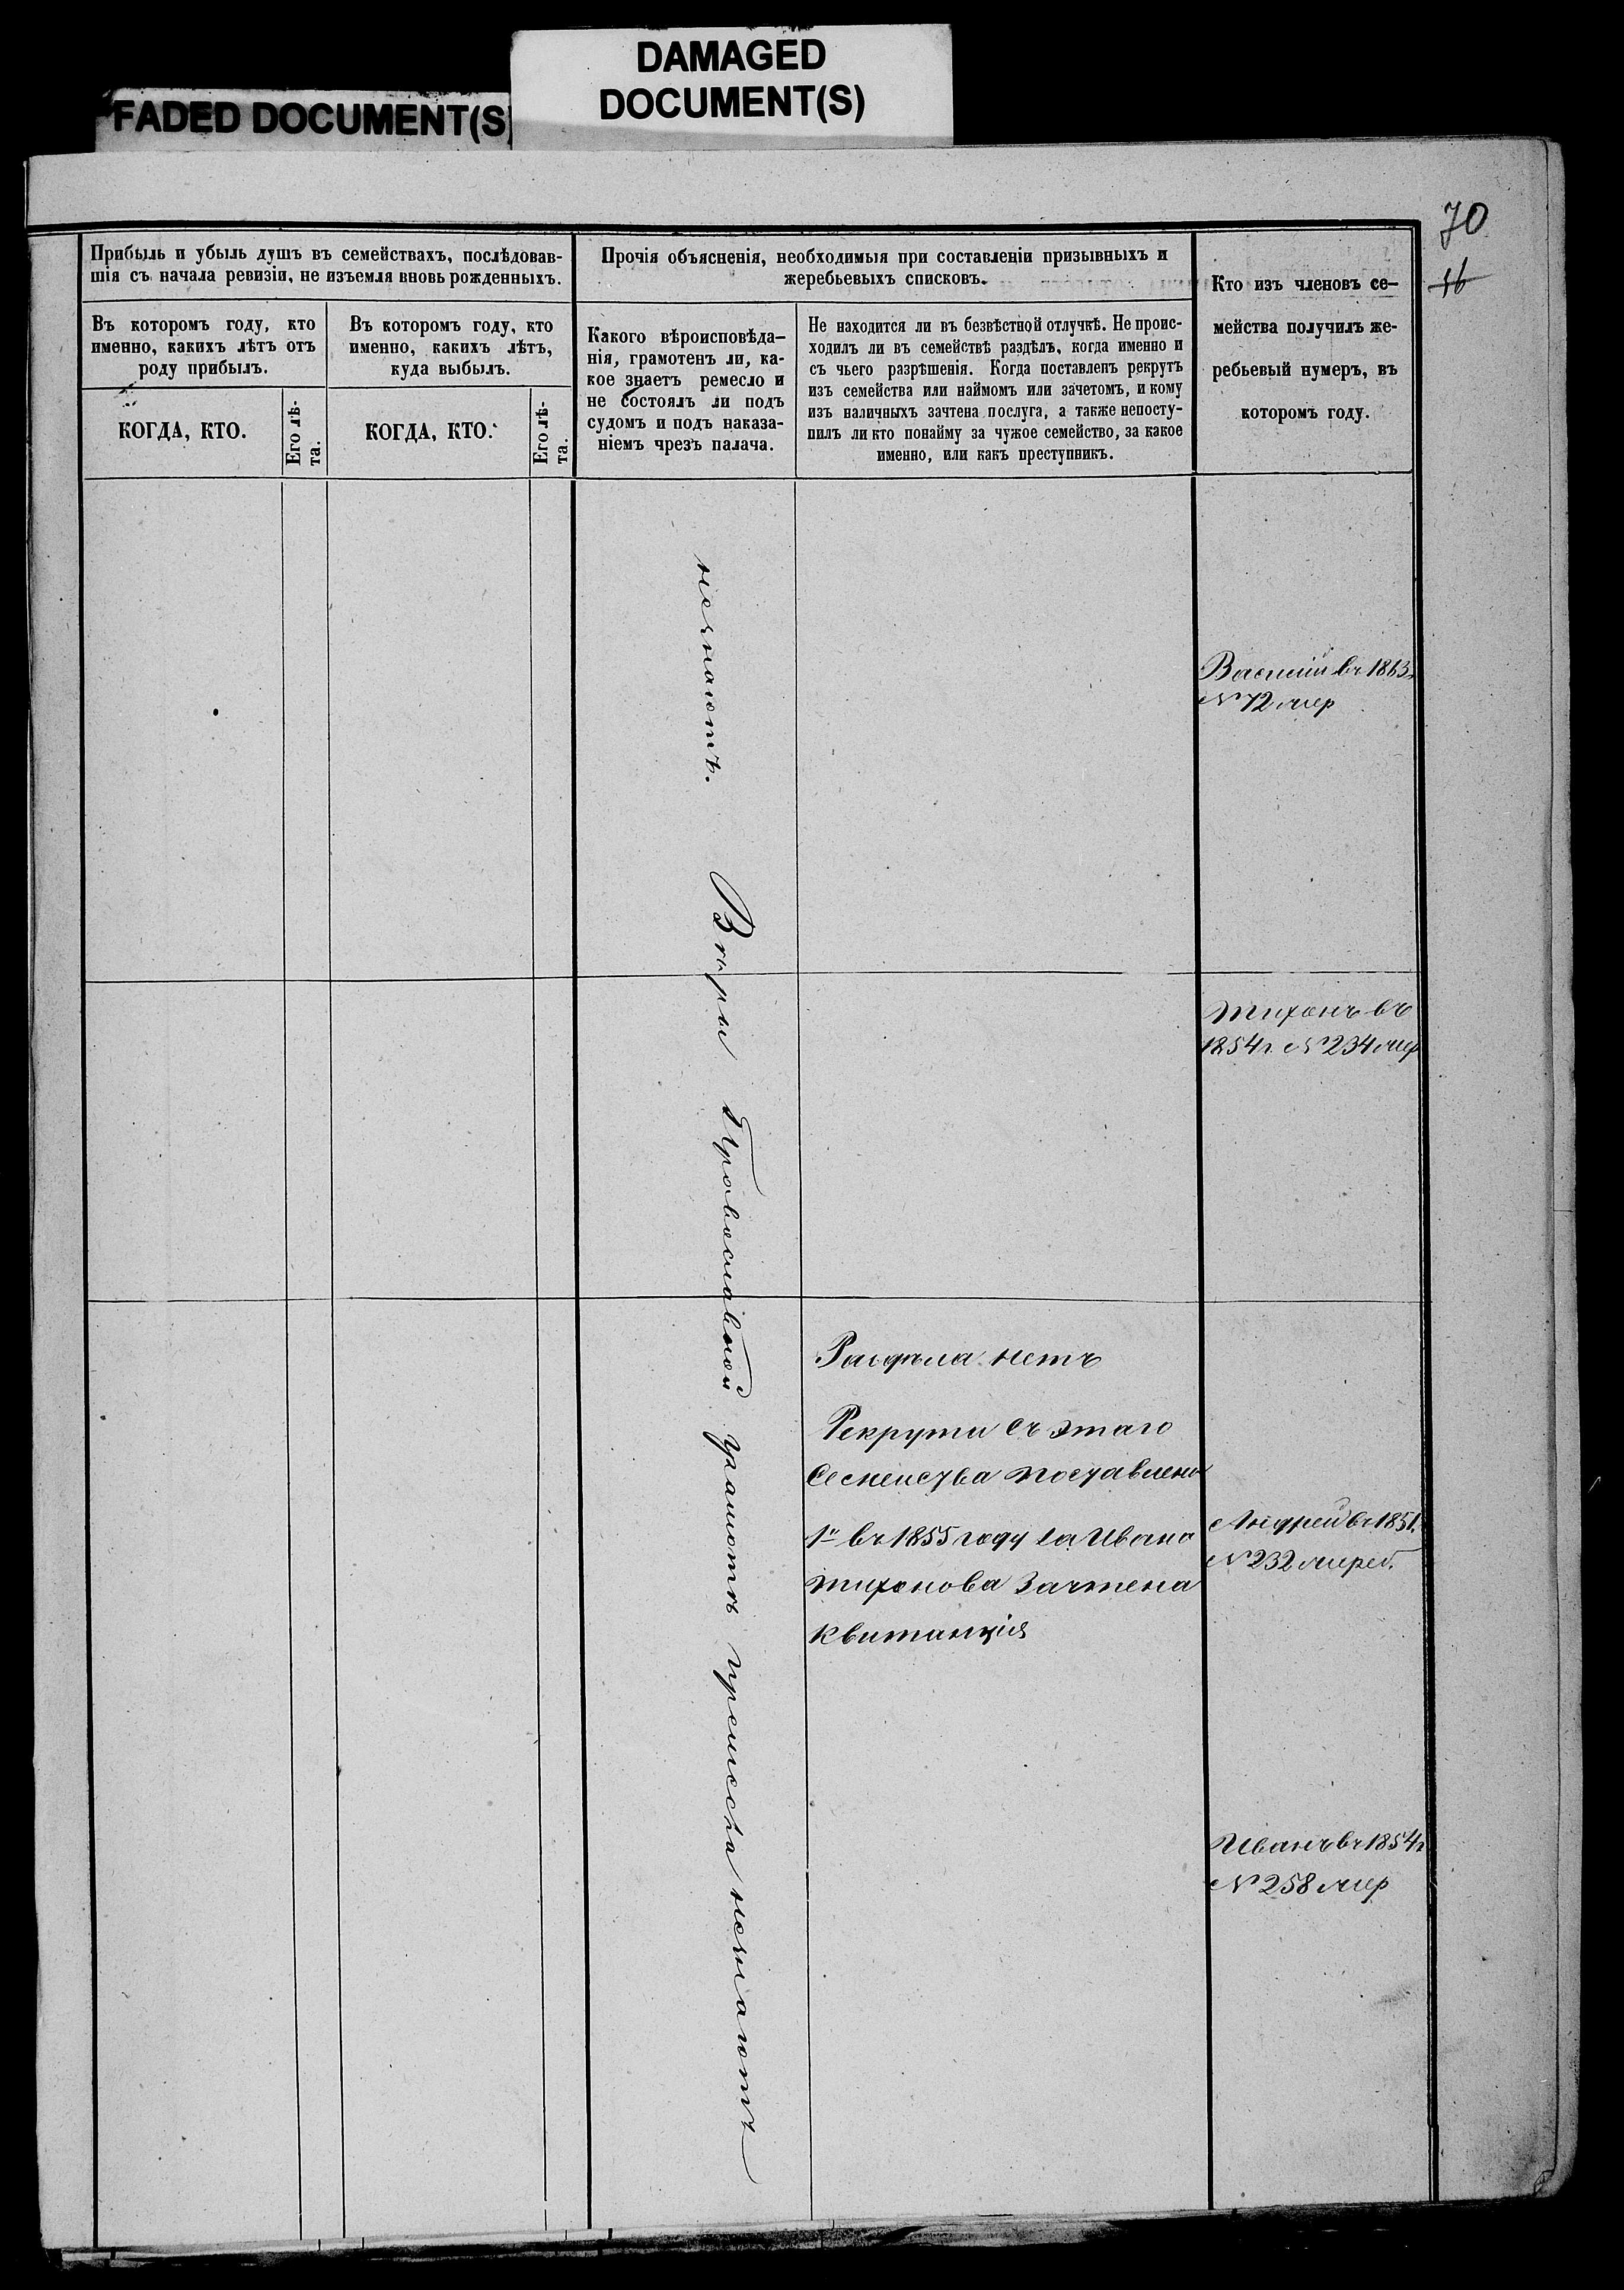 DAMAGED
DOCUMENT(S)
FADED DOCUMENT(S)
70
16
Прибыль и убыль душъ въ семействахъ, послѣдовав-
шія съ начала ревизіи, не изъемля вновь рожденныхъ.
Въ которомъ году, кто
именно, какихъ лѣтъ отъ
роду прибылъ.
КОГДА, КТО.
Его лѣ-
та.
Въ которомъ году, кто
именно, какихъ лѣтъ,
куда выбылъ.
КОГДА, КТО.
Его лѣ-
та.
Прочія объясненія, необходимыя при составленіи призывныхъ и
жеребьевыхъ списковъ.
Какого вѣроисповѣда-
нія, грамотенъ ли, ка-
кое знаетъ ремесло и
не состоялъ ли подъ
судомъ и подъ наказа-
ніемъ чрезъ палача.
Не находится ли въ безвѣстной отлучкѣ. Не проис-
ходилъ ли въ семействѣ раздѣлъ, когда именно и
съ чьего разрѣшенія. Когда поставленъ рекрутъ
изъ семейства или наймомъ или зачетомъ, и кому
изъ наличныхъ зачтена послуга, а также непосту-
пилъ ли кто понайму за чужое семейство, за какое
именно, или какъ преступникъ.
Кто изъ членовъ се-
мейства получилъ же-
ребьевый нумеръ, въ
которомъ году.
незнаютъ.
Вѣры Православной грамотѣ иремесла незнаютъ
Василій въ 1863
№ 72 жер
Тихонъ въ
1854 г. № 234 жер
Раздѣла нетъ
Рекрути съ этаго
Семейства поставлено
1й въ 1855 году за Ивана
Тихонова Зачтена
квитанція
Андрей въ 1851
№ 232 жереб.
Иванъ въ 1854 г
№ 258 жер